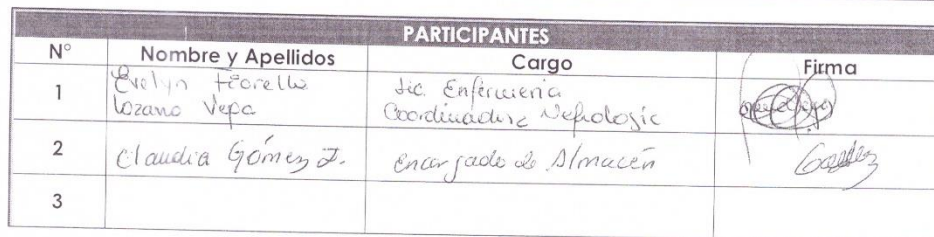 PARTICIPANTES
N° Nombre y Apellidos Cargo Firma
1 Evelyn Fiorella Lic. Enfermeria
Lozano Vega Coordinadora Nefrologia
2 Claudia Gómez J. encargado de Almacén
3